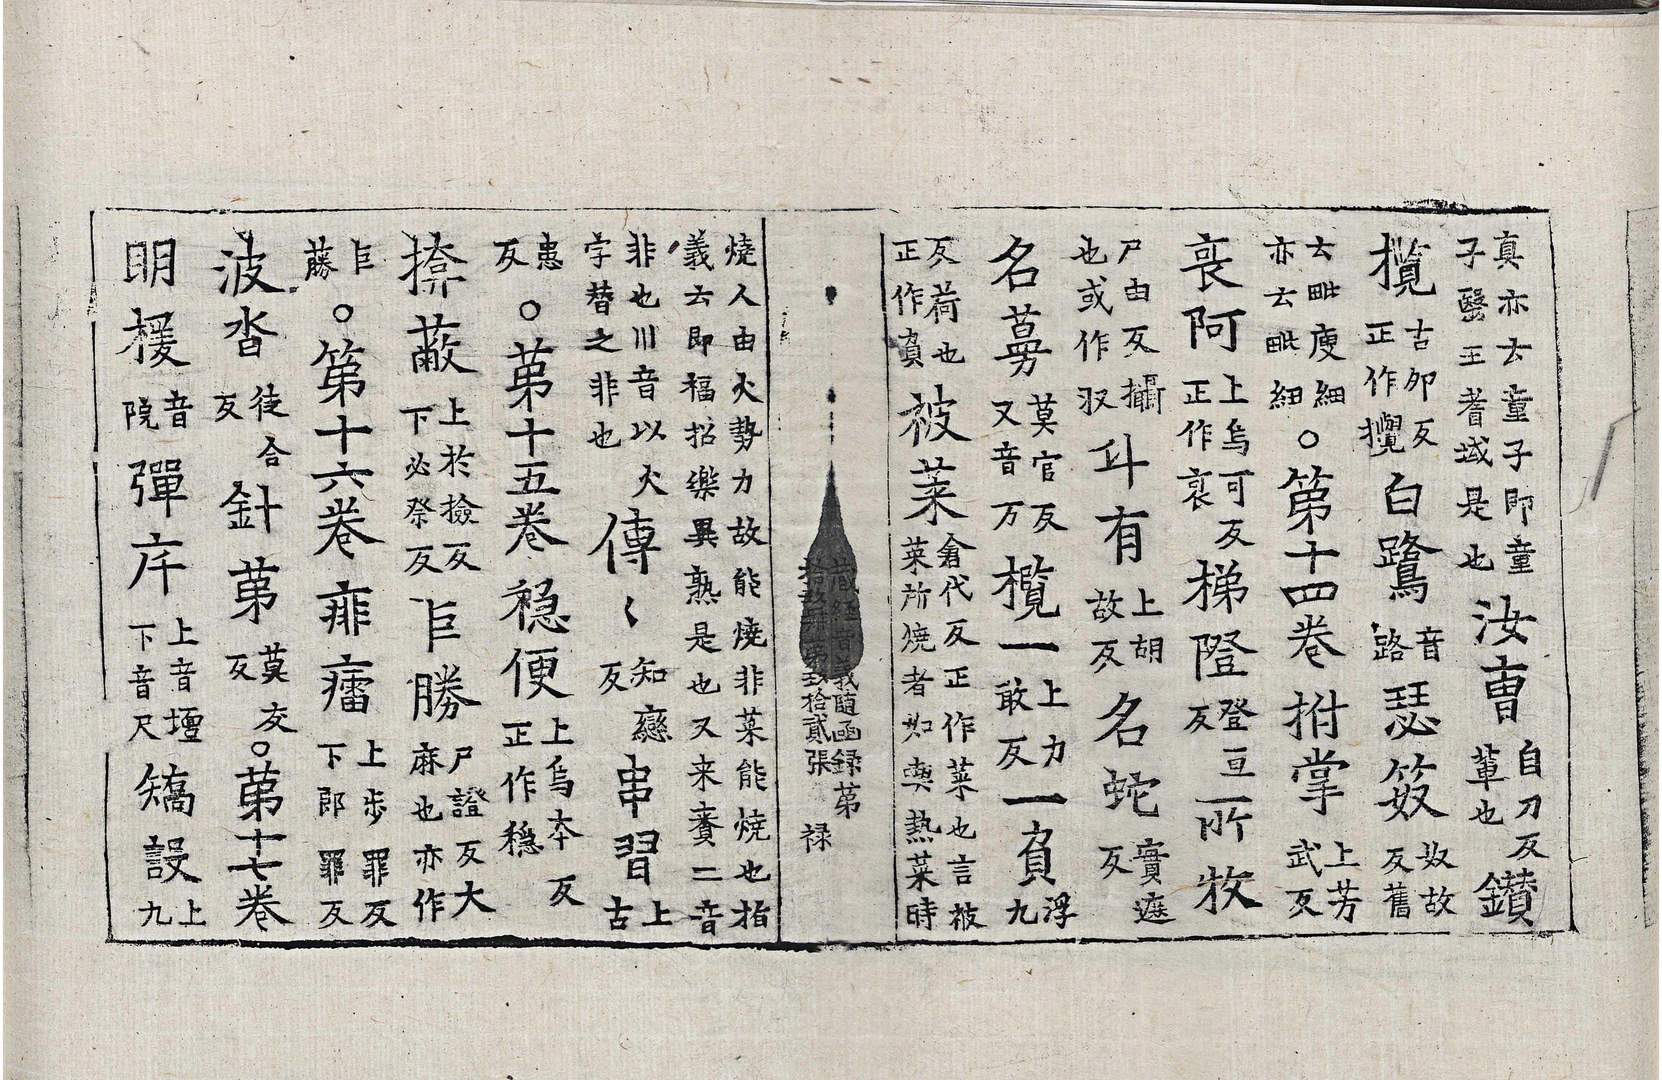 真亦云童子即童子醫王耆域是也汝曺自刀反輩也鑽
攬古卯反正作攪白鷺音路瑟笯奴故反舊
云毗廋細亦云毗細○第十四卷拊掌上芳武反
阿上烏可反正作裒梯隥登亘反所牧
尸由反攝也或作収斗有上胡故反名蛇實遮反
名蔓莫官反又音万攬一上力敢反一負浮九
反荷也正作負被菜倉代反正作菜也言被菜所燒者如熱菜時
藏經音義隨函録第
拾玖冊第玖拾貳張 禄
燒人由火勢力故能燒非菜能燒也指義云即福招樂異熟是也又来賚二音
非也川音以火字替之非也傳〻知戀反串習上古
患反○第十五卷穏便上烏本反正作穏
揜蔽上於撿反下必祭反巨勝尸證反大麻也亦作
巨藤○第十六卷痱癗上步罪反下郎罪反
波沓徒合反針第莫交反○第十七卷
明楥音院彈斥上音壇下音尺矯設上九